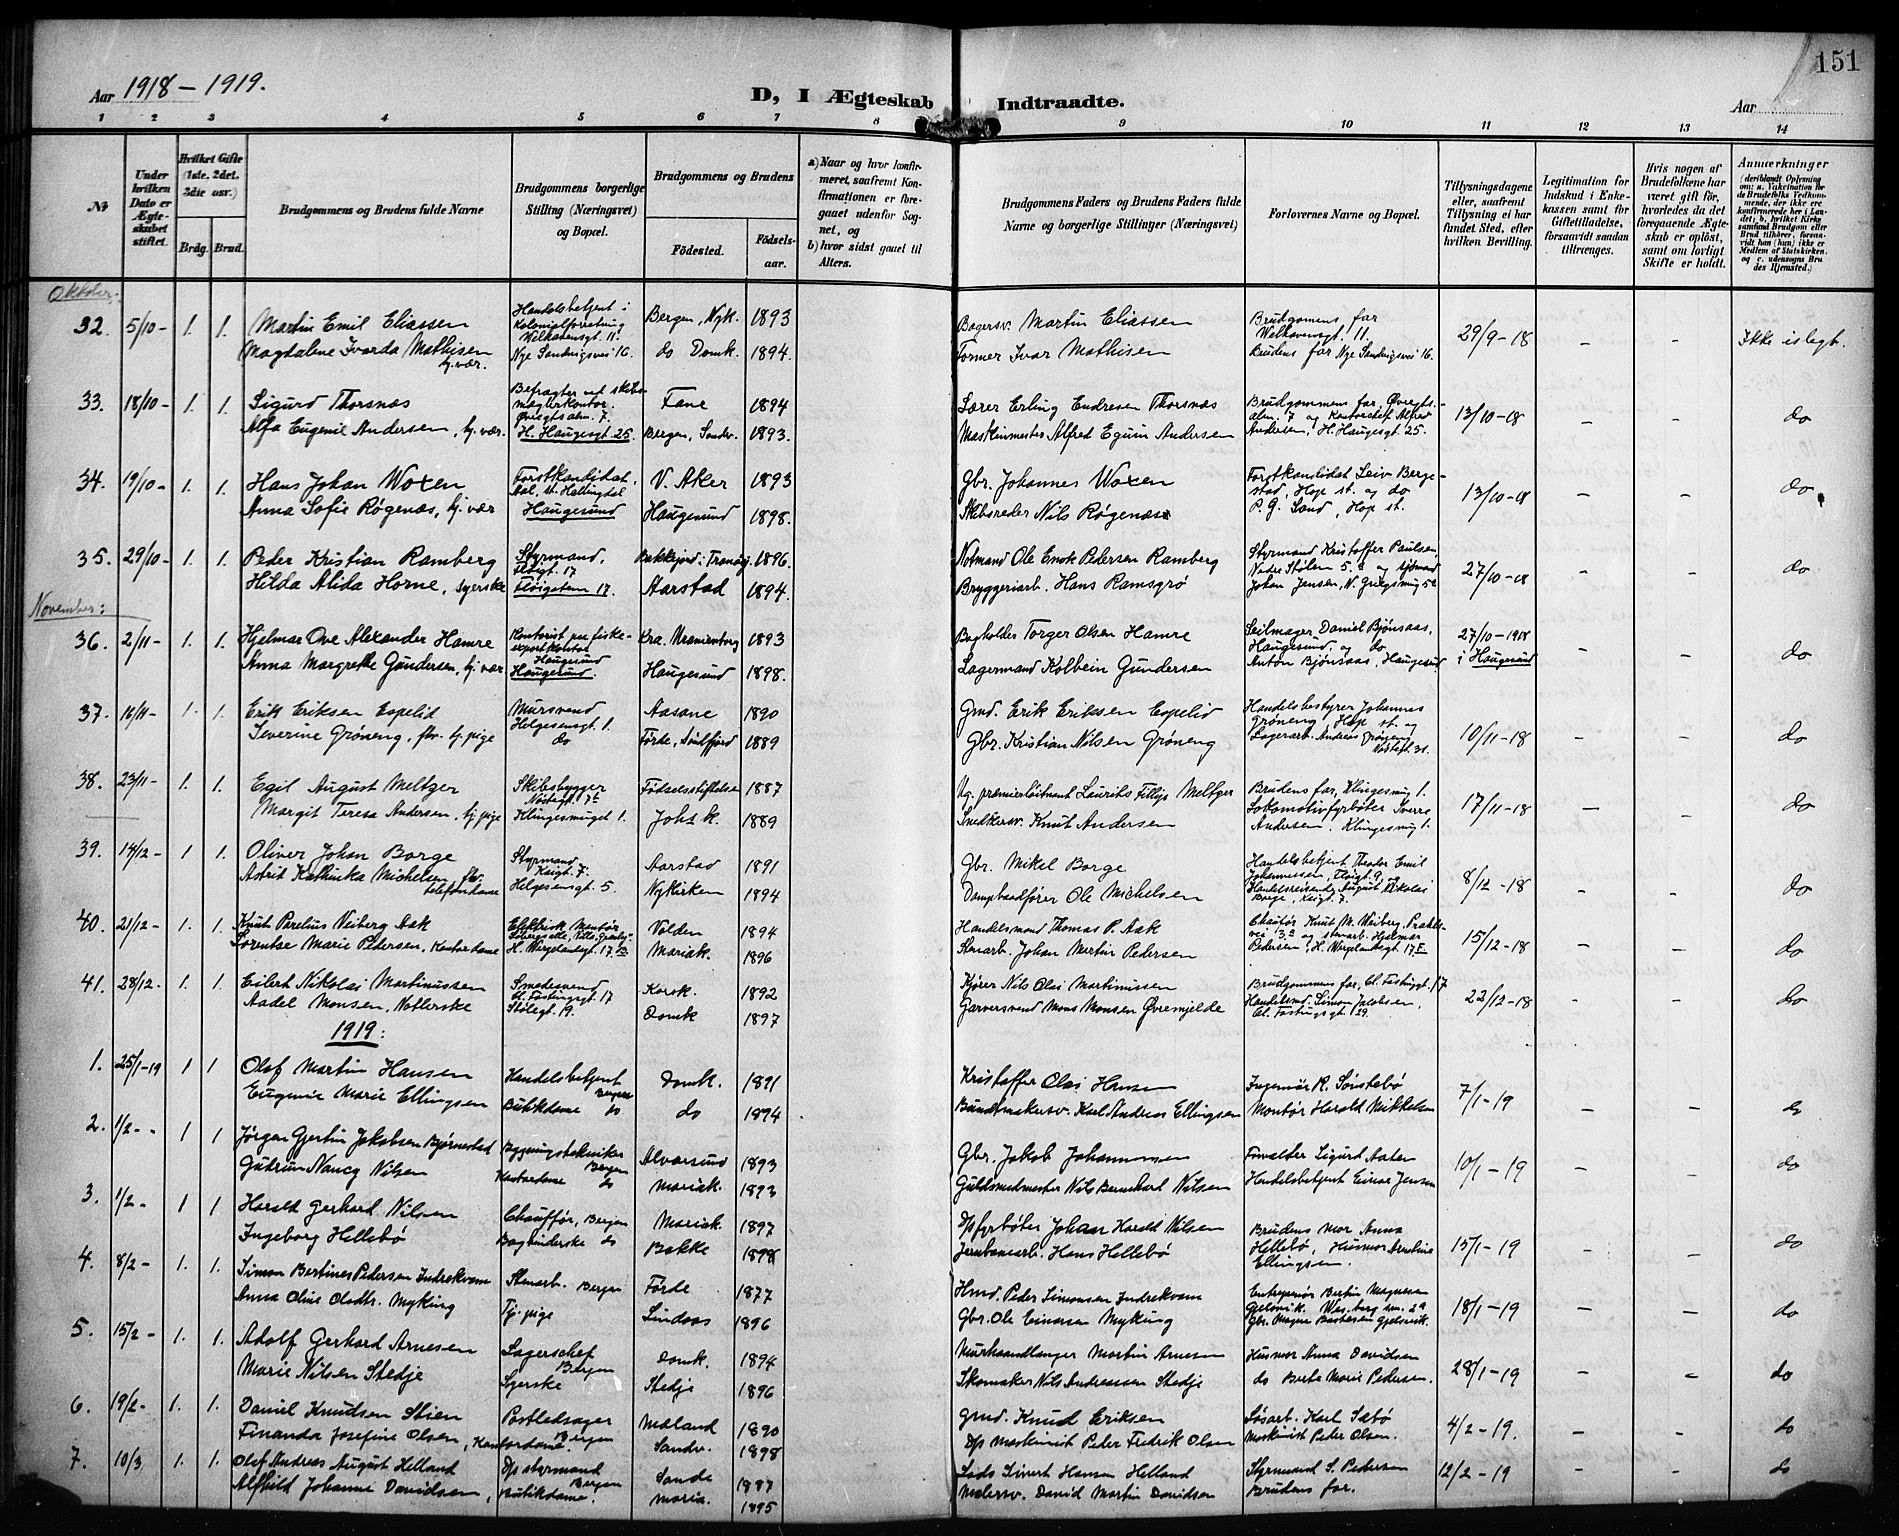 151
Aar 1918 – 1919.
D, I Ægteskab Indtraadte.
Aar
1 2 3 4 5 6 7 8 9 10 11 12 13 14
№
Under hvilken Dato er Ægteskabet stiftet.
Hvilket Gifte (1ste, 2det, 3die osv.)
Brdg. Brud.
Brudgommens og Brudens fulde Navne
Brudgommens borgerlige Stilling (Næringsvei) og Bopæl.
Brudgommens og Brudens
Fødested. Fødselsaar.
a) Naar og hvor konfirmeret, saafremt Konfirmationen er foregaaet udenfor Sognet, og
b) hvor sidst gaaet til Alters.
Brudgommens Faders og Brudens Faders fulde Navne og borgerlige Stillinger (Næringsvei)
Forlovernes Navne og Bopæl.
Tillysningsdagene eller, saafremt Tillysning ei har fundet Sted, efter hvilken Bevilling.
Legitimation for Indskud i Enkekassen samt for Giftetilladelse, forsaavidt saadan tiltrænges.
Hvis nogen af Brudefolkene har været gift før, hvorledes da det foregaaende Ægteskab er opløst, samt om lovligt Skifte er holdt.
Anmærkninger (deriblandt Oplysning om: a. Vakcination for de Brudefolks Vedkommende, der ikke er konfirmerede her i Landet; b. hvilket Kirkesamfund Brudgom eller Brud tilhører, forsaavidt han (hun) ikke er Medlem af Statskirken, og c. udensogns Brudes Hjemsted.)
Oktober:
32. 5/10 – 1. 1. Martin Emil Eliassen Handelsbetjent i Kolonialforretning Welhavensgt. 11. Bergen, Nyk. 1893 Bagersv. Martin Eliassen Brudgomens far Welhavensgt. 11. 29/9 – 18 – – Ikke islegt.
Magdalene Ivarda Mathisen hj.vær. Nye Sandvigsvei 16. do Domk. 1894. Former Ivar Mathisen Brudens far Nye Sandvigsvei 16.
33. 18/10 – 1. 1. Sigurd Thorsnæs Befragter ved skibsmæglerkontor. Øvregtsalm. 7 Fane 1894 Lærer Erling Endresen Thorsnæs Brudgommens far, Øvregtsalm. 7 og Kontorchef Alfred 13/10 – 18 – – do
Alfa Eugenie Andersen, hj. vær. H. Haugesgt. 25. Bergen, Sandv. 1893. Maskinmester Alfred Eguin Andersen Andersen, H. Haugesgt. 25.
34. 19/10 – 1. 1. Hans Johan Woxen Forstkandidat, Aal, st. Hallingdal V. Aker 1893 Gbr. Johannes Woxen Forstkandidat Leiv Bergestad, Hop st. og do 13/10 – 18 – – do
Anna Sofie Røgenæs, hj. vær Haugesund Haugesund 1898. Skibsreder Nils Røgenæs P. G. Sand, Hop st.
35. 29/10 – 1. 1. Peder Kristian Ramberg Styrmand, Fløigt. 17 Bakkejord i Tromsøy. 1896. Notmand Ole Enok Pedersen Ramberg Styrmand Kristoffer Paulsen, Nedre Stølen 5.a og sjømand 27/10 – 18 – – do
Hilda Alida Horne, syerske Fløigaten 17. Aarstad 1894. Bryggeriarb. Hans Ramsgrø Johan Jensen, N. Griegsmug 5a
November:
36. 2/11 – 1. 1. Hjalmar Ove Alexander Hamre Kontorist paa fiskeexportkontor Haugesund Kra. Uranienborg 1893 Bogholder Torger Olsen Hamre Seilmager Daniel Bjønsaas, Haugesund, og do 27/10 – 1918 – – do
Anna Margrethe Gundersen, hj. vær Haugesund. Haugesund 1898. Lagermand Kolbein Gundersen Anton Bjønsaas, Haugesund i Haugesund
37. 16/11 – 1. 1. Erik Eriksen Espelid Mursvend Helgesensgt. 1. Aasane 1890 Grd. Erik Eriksen Espelid Handelsbestyrer Johannes Grøneng, Hop st. og 10/11 – 18 – – do
Severine Grøneng, fhv. tj. pige do Førde, Søndfjord 1889 Gbr. Kristian Nilsen Grøneng Lagerarb. Andreas Grøneng Nøstegt. 31.
38. 23/11 – 1. 1. Egil August Meltzer Skibsbygger Nøstegt. 7c Fødselsstiftelsen 1887 Vg. premierløitnant Laurits Fillip Meltzer Brudens far, Klingesmug 1. 17/11 – 18 – – do
Margit Teresa Andersen, tj. pige Klingesmuget 1. Johs k. 1889 Snedkersv. Knut Andersen Lokomotivfyrbøter Sverre Andersen, Klingesmug 1.
39. 14/12 – 1 1. Oliver Johan Borge Styrmand Krigt. 7. Aarstad 1891 Gbr. Mikel Borge Handelsbetjent Theodor Emil Johannessen, Fløigt. 9, og 8/12 – 18 – – do
Astrid Kathinka Michelsen, fhv. telefondame Helgesensgt. 5. Nykirken 1894 Dampbaadfører Ole Michelsen Handelsreisende August Nikolai Borge, Krigt. 7.
40. 21/12 – 1. 1. Knut Parelius Veiberg Aak Elektrisk Montør Volden 1894 Handelsmand Thomas P. Aak Chaufør Knut M. Veiberg, 15/12 – 18 – – do
Lorentze Marie Pedersen, Kontordame H. Wergelandsgt. 17 Mariak. 1896 Stenarb. Johan Martin Pedersen og stenarb. Hjalmar Pedersen, H. Wergelandsgt. 17
41. 28/12 – 1. 1. Eilert Nikolai Martinussen Smedesvend Cl. Fastingsgt. 17 Korsk. 1892 Kjører Nils Olai Martinussen Brudgommens far, Cl. Fastingsgt. 17 22/12 – 18 – – do
Aadel Monsen, Natterske Stølegt. 19. Domk 1897 Garversvend Mons Monsen Øvremjelde Handelsmd. Simon Jacobsen, Cl. Fastingsgt. 29.
1919:
1. 25/1 – 19 1 1 Olaf Martin Hansen Handelsbetjent Bergen Domk. 1891 Kristoffer Olai Hansen Ingeniør R. Sønstebø 7/1 – 19 – – do
Eugenie Marie Ellingsen Butikdame do do 1894 Bundtmakersv. Karl Andreas Ellingsen Montør Harald Mikkelsen
2. 1/2 – 1 1 Jørgen Gjertin Jakobsen Bjørnestad Bygningstekniker Bergen Alversund 1893 Gbr. Jakob Johannessen Forvalter Sigurd Aaten 10/1 – 19 – – do
Gutrun Nancy Nilsen Kontordame do Mariak. 1893 Guldsmedmester Nils Bernhard Nilsen Handelsbetjent Einar Jensen
3. 1/2 – 1 1. Harald Gerhard Nilsen Chauffør, Bergen Mariak. 1897 D/s fyrbøter Johan Harald Nilsen Brudens mor Anna Hellebø, Husmor 15/1 – 19 – – do
Ingeborg Hellebø Bogbinderske do Bakke 1898 Jernbanearb. Hans Hellebø Ellingsen.
4. 8/2 – 1. 1. Simon Bertines Pedersen Indrekvam Stenarb. Bergen Førde 1877 Hmd. Peder Simonsen Indrekvam Entreprenør Bertin Magnesen 18/1 – 19 – – do
Anna Oline Olsdtr. Myking Tj. pige Lindaas 1896 Gbr. Ole Einarsen Myking Gbr. Magne Bastesen Gjelsvik.
5. 15/2 – 1. 1. Adolf Gerhard Arnesen Lagerchef Bergen Domk. 1894 Murhaandlanger Martin Arnesen Husmor Anna Davidsen 28/1 – 19 – – do
Marie Nilsen Stedje Syerske Stedje 1896 Skomaker Nils Andreassen Stedje do Berte Marie Pedersen.
6. 19/2 – 1. 1. Daniel Knudsen Stien Postledsager Bergen Maland 1890 Grd. Knud Eriksen Løsarb. Karl Sæbø 4/2 – 19. – – do
Finanda Josefine Olsen, Kontordame. Sandv. 1898 D/s maskinist Peder Fredrik Olsen Maskinist Peter Olsen.
7. 10/3 1. 1. Olaf Andreas August Helland D/s styrmand Bergen Sande 1887 Lods Sivert Hansen Helland Styrmand S. Pedersen 12/2 – 19 – – do
Alfhild Johanne Davidsen, Butikdame. Maria. 1895 Malersv. David Martin Davidsen Brudens far.